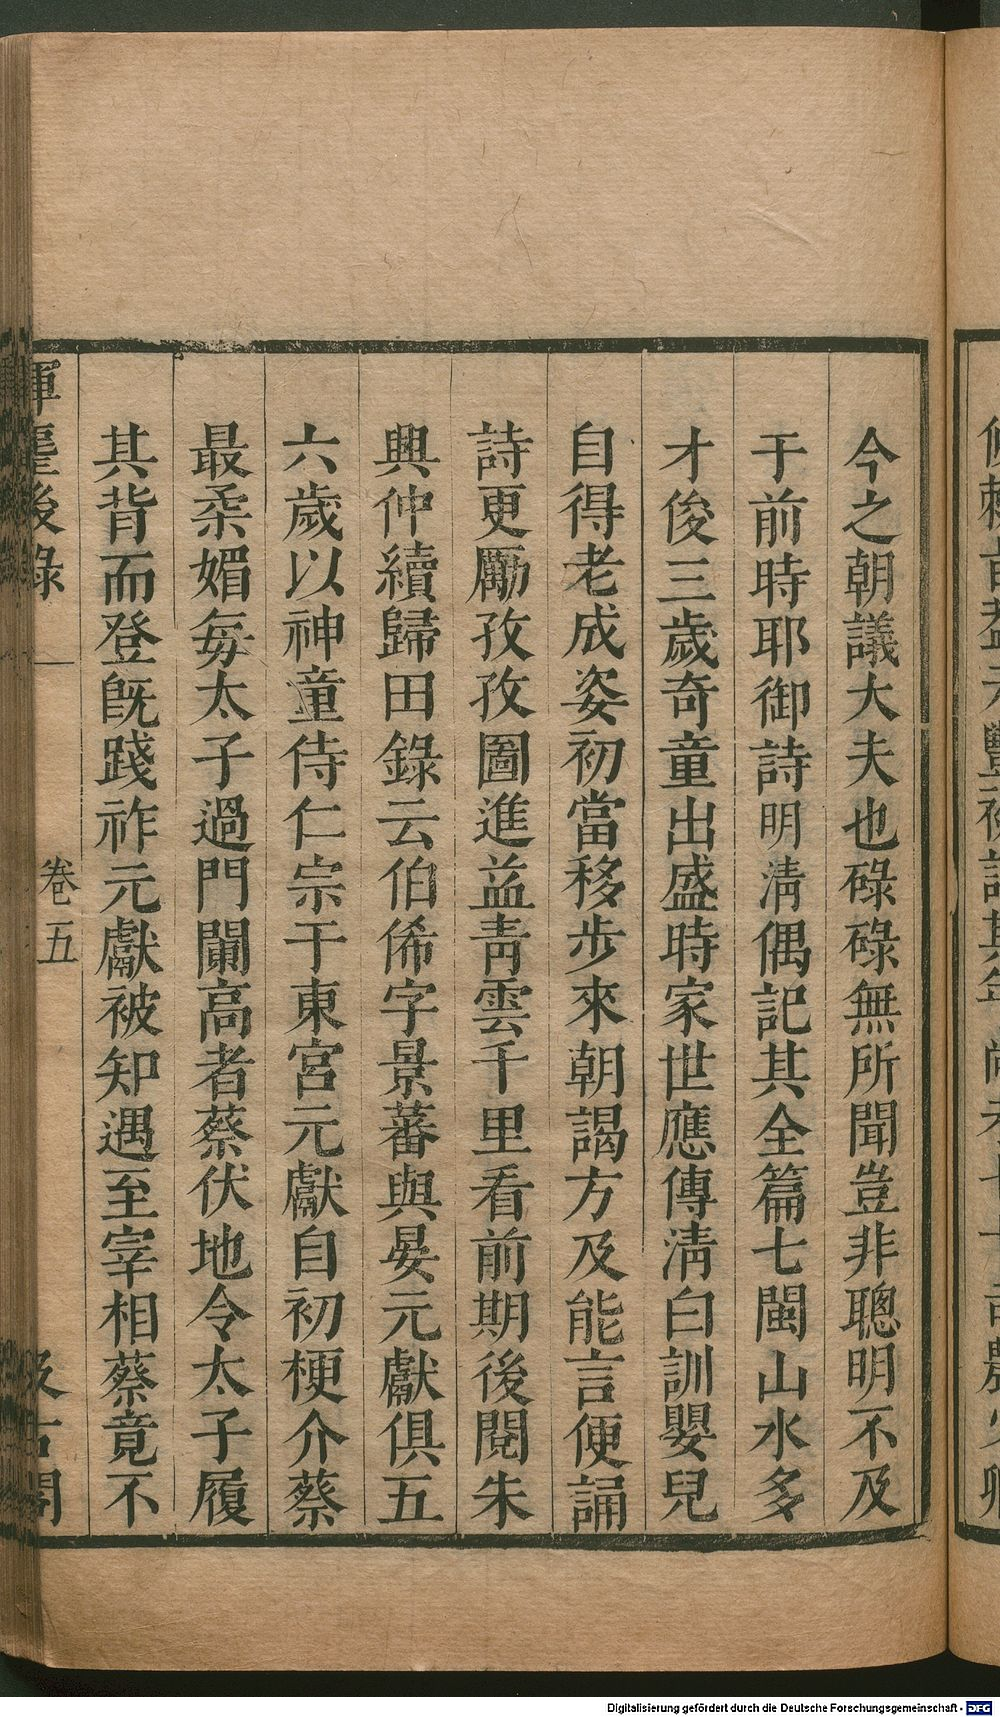 今之朝議大夫也碌碌無所聞豈非聰明不及
于前時耶御詩明淸偶記其全篇七閩山水多
才俊三歲奇童出盛時家世應傳淸白訓嬰兒
自得老成姿初當移步來朝謁方及能言便誦
詩更勵孜孜圖進益靑雲千里看前期後閱朱
興仲續歸田錄云伯俙字景蕃與晏元獻俱五
六歲以神童侍仁宗于東宮元獻自初梗介蔡
最柔媚每太子過門闑高者蔡伏地令太子履
其背而登旣踐祚元獻被知遇至宰相蔡竟不
揮麈後錄 卷五 汲古閣
Digitalisierung gefördert durch die Deutsche Forschungsgemeinschaft - DFG